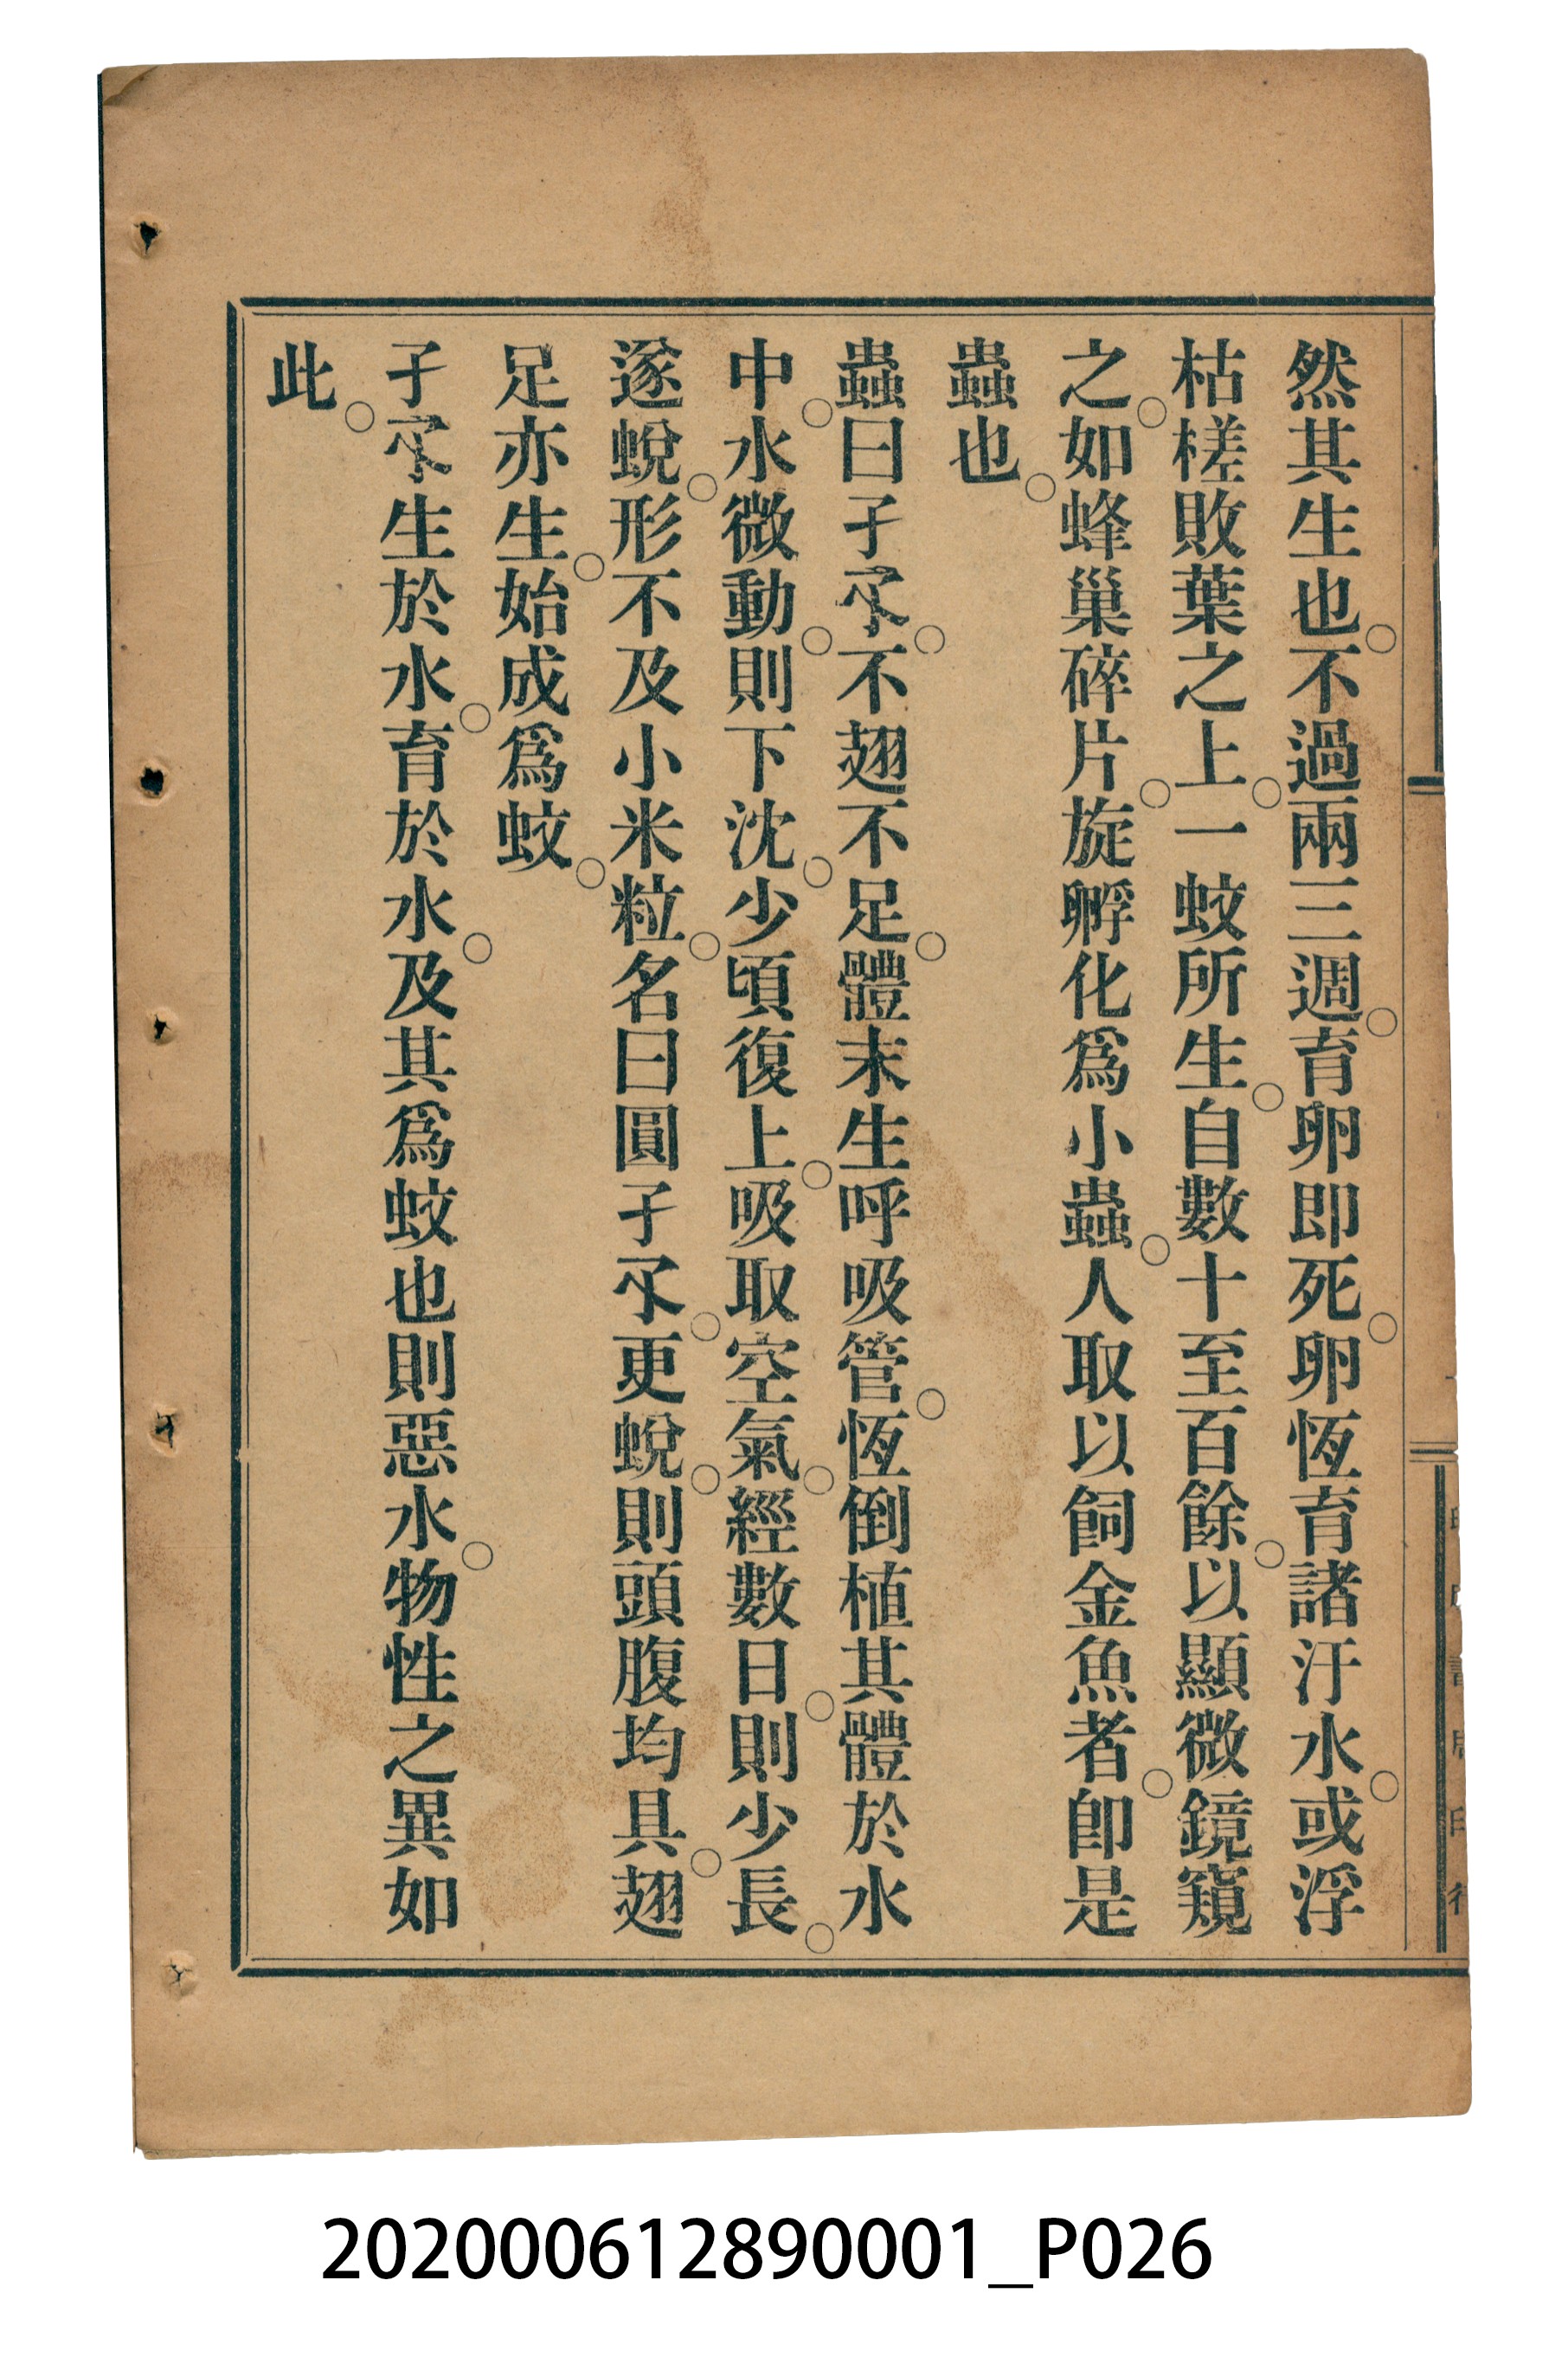 然其生也。不過兩三週。育卵即死。卵恆育諸汙水。或浮
枯槎敗葉之上。一蚊所生。自數十至百餘。以顯微鏡窺
之。如蜂巢碎片。旋孵化爲小蟲。人取以飼金魚者。卽是
蟲也。
蟲曰孑孓。不翅不足。體末生呼吸管。恆倒植其體於水
中。水微動。則下沈。少頃復上。吸取空氣。經數日。則少長。
遂蛻。形不及小米粒。名曰圓孑孓。更蛻。則頭腹均具。翅
足亦生。始成爲蚊。
孑孓生於水。育於水。及其爲蚊也則惡水。物性之異如
此。
202000612890001_P026